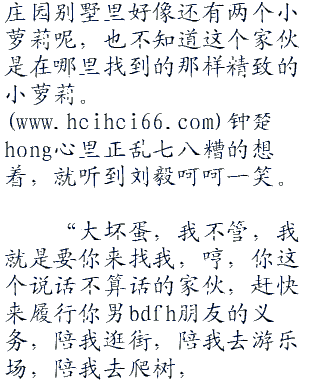 庄园别墅里好像还有两个小
萝莉呢，也不知道这个家伙
是在哪里找到的那样精致的
小萝莉。
(www.hcihci66.com)钟楚
hong心里正乱七八糟的想
着，就听到刘毅呵呵一笑。
“大坏蛋，我不管，我
就是要你来找我，哼，你这
个说话不算话的家伙，赶快
来履行你男bdfh朋友的义
务，陪我逛街，陪我去游乐
场，陪我去爬树，